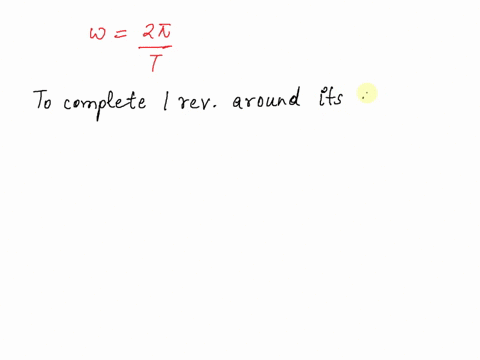 ω = 2π
T
To complete 1 rev. around its